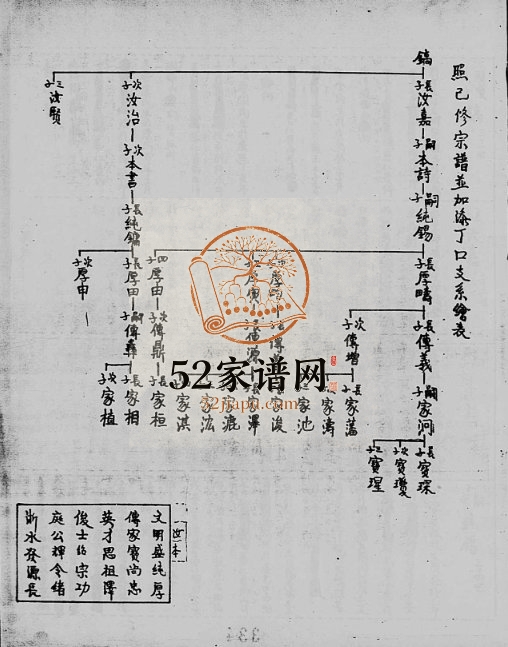 照已修宗譜並加添丁口支系繪表
鎬
長子汝嘉
嗣子本詩
嗣子純錫
長子厚疇
長子傳義
嗣子家河
長子寶琛
次子寶瓊
三子寶瑆
次子傳增
長子家藩
家濤
家池
家浚
家澤
家漉
家浤
家淇
四子厚由
次子傳鼎
長子家桓
次子汝治
次子本書
長子純鏞
長子厚田
嗣子傳彝
長子家相
次子家植
次子厚申
三子汝賢
汝本
文明盛純厚
傳家寶尚忠
英才思祖澤
俊士紹宗功
庭公禪令緒
浙水發源長
52家谱网
www.52jiapu.com
334